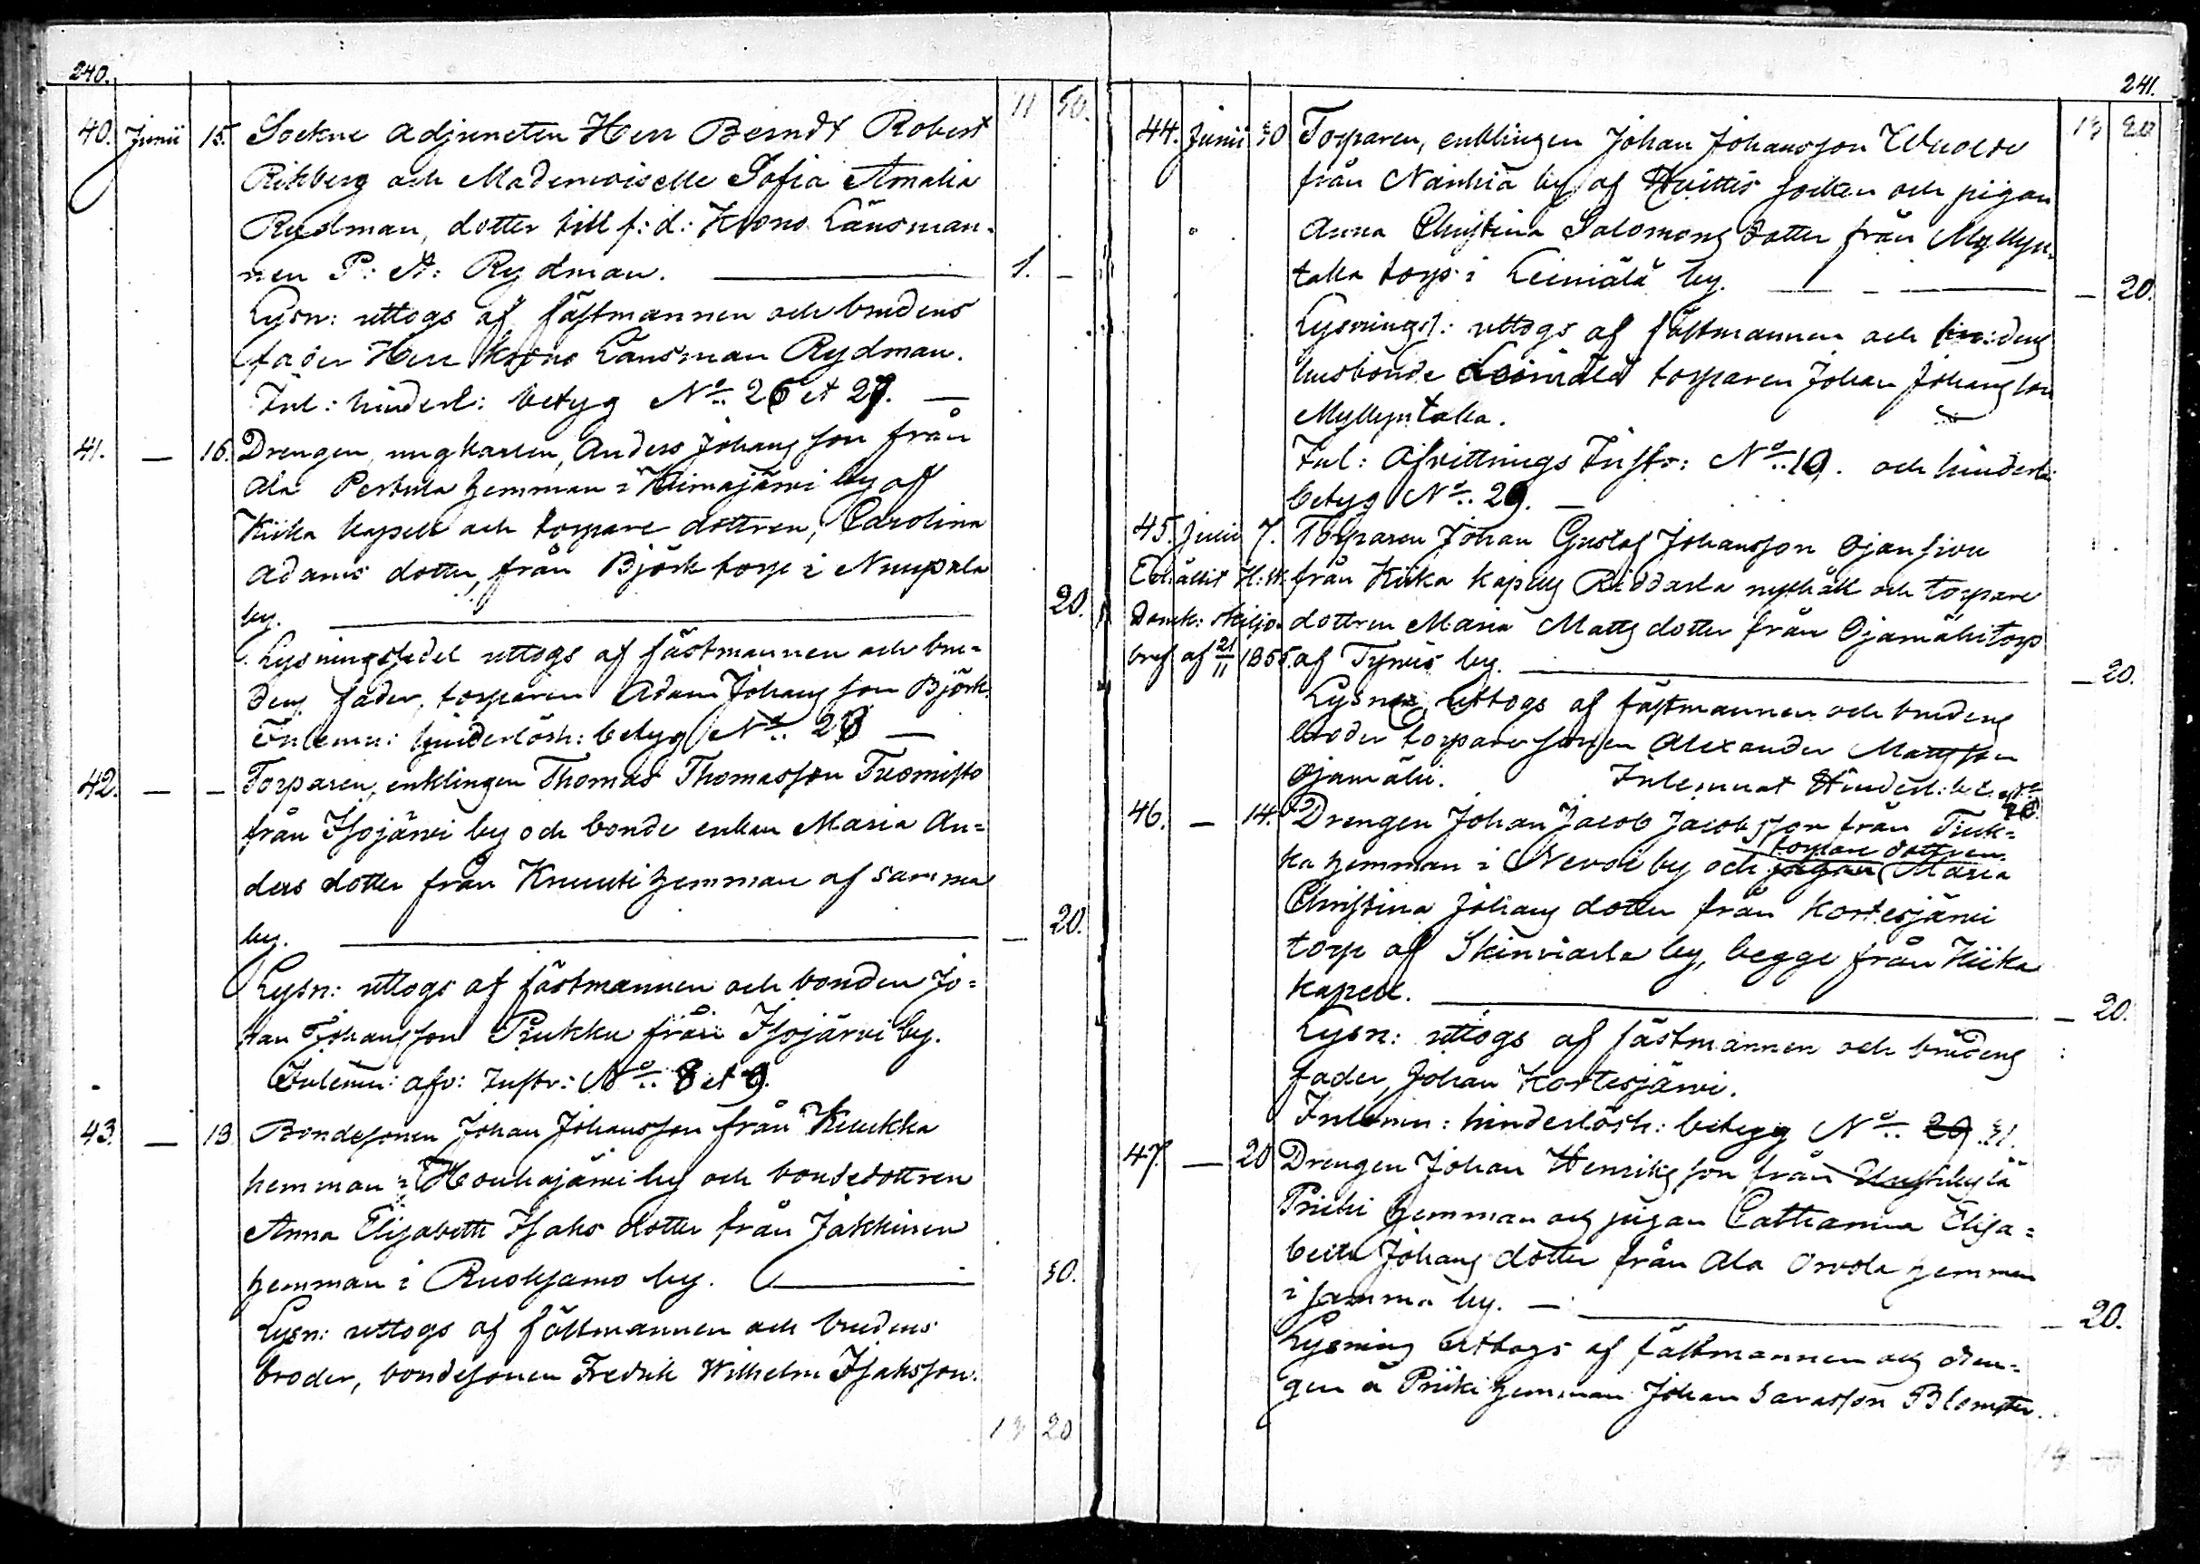 240.
11 50.
40. Junii 15. Sockne Adjuncten Herr Berndt Robert
Rihberg och Mademoiselle Sofia Amalia
Rydman, dotter till f: d: Krono Länsman-
nen P: A: Rydman. — 1. —
Lysn: uttogs af fästmannen och brudens
fader Herr krono Länsman Rydman.
Inl: hinderl: betyg No 26 et 27. —
41. — 16. Drengen, ungkarlen, Anders Johansson från
Ala Pertula hemman i Kiimajärvi by af
Kiika kapell och torpare dottren, Carolina
Adams dotter, från Björk torp i Nuupala
by. — 20.
Lysningssedel uttogs af fästmannen och bru-
dens fader, torparen Adam Johansson Björk.
Inlemn: hinderlösh: betyg No 28 —
42. — — Torparen, enklingen Thomas Thomasson Tuomisto
från Isojärvi by och bonde enkan Maria An-
ders dotter från Knuuti hemman af samma
by. — — 20.
Lysn: uttogs af fästmannen och bonden Jo-
han Johansson Pukku från Isojärvi by.
Inlemn: afv: Instr: No 8 et 9.
43. — 18 Bondesonen Johan Johansson från Kuukka
hemman i Houhajärvi by och bondedottren
Anna Elisabeth Isaks dotter från Jakkinen
hemman i Ruoksamo by. — 30.
Lysn: uttogs af fästmannen och brudens
broder, bondesonen Fredrik Wilhelm Isaksson.
13 20
241.
13 20
44. Junii 30 Torparen, enklingen Johan Johansson
från Nanhia by af Huittis socken och pigan
Anna Christina Salomons dotter från Myllyn-
taka torp i Leiniälä by. — — 20.
Lysningss: uttogs af fästmannen och brudens
husbonde torparen Johan Johansson
Myllyntaka.
Inl: Afvittrings Instr: No 10. och hinderl:
betyg No 29. —
45. Julii 7. Torparen Johan Gustaf Johansson Ojansivu
från Kiika kapells Riddarla nyhäll och torpare
Domk: skiljo- dottren Maria Matts dotter från Ojamäki torp
bref af 21/11 1855. af Tyrvis by. — — 20.
Lysn: uttogs af fästmannen och brudens
broder torpare sonen Alexander Mattsson
Ojamäki. Inlemnat Hinderl: bet. No
46. — 14. Drengen Johan Jacob Jacobsson från Tuk-
torpare dottren
ka hemman i Nevoi by och pigan Maria
Christina Johans dotter från Kortesjärvi
torp af Skinviarla by, begge från Kiika
kapell. — — 20.
Lysn: uttogs af fästmannen och brudens
fader, Johan Kortesjärvi.
Inlemn: hinderlösh: betyg No 29 31.
47. — 20 Drengen Johan Henriksson från
Priiki hemman och pigan Catharina Elisa-
beth Johans dotter från Ala Orvola hemman
i samma by. — — 20.
Lysning uttogs af fästmannen och dren-
gen å Priiki hemman Johan Blomster.